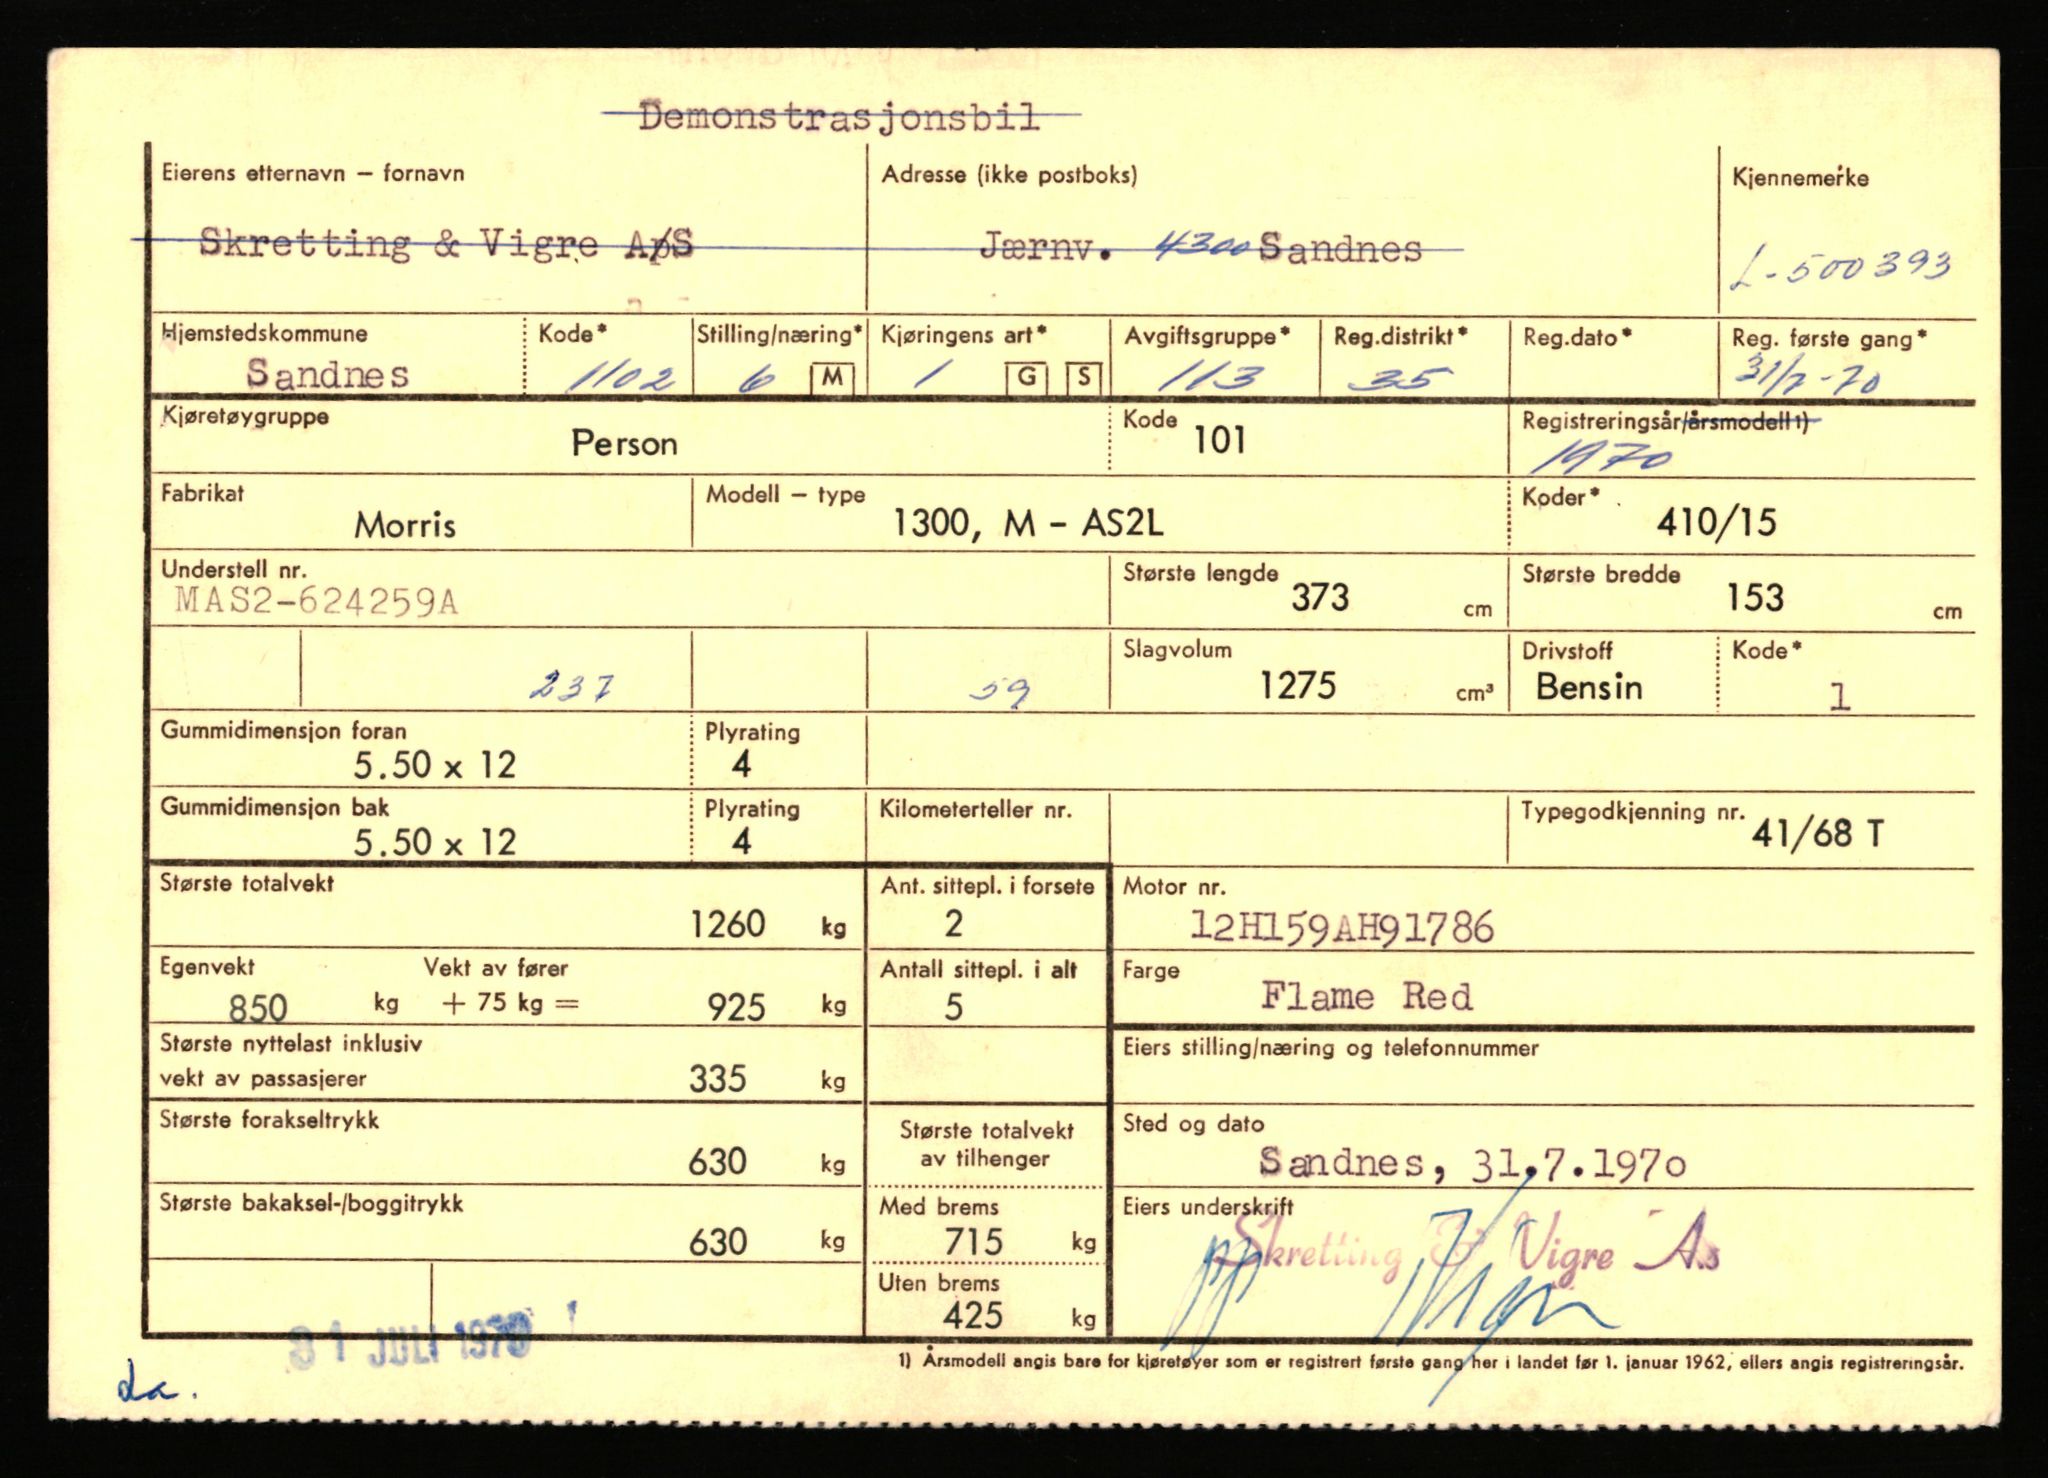 Demonstrasjonsbil
Eierens etternavn – fornavn
Adresse (ikke postboks)
Kjennemerke
Skretting & Vigre A/S
Jærnv. 4300 Sandnes
L-500393
Hjemstedskommune
Kode*
Stilling/næring*
Kjøringens art*
Avgiftsgruppe*
Reg.distrikt*
Reg.dato*
Reg. første gang*
Sandnes
1102
6 M
1 G S
113
35
31/7-70
Kjøretøygruppe
Person
Kode
101
Registreringsår/årsmodell 1)
1970
Fabrikat
Morris
Modell – type
1300, M – AS2L
Koder*
410/15
Understell nr.
MAS2-624259A
Største lengde
373 cm
Største bredde
153 cm
237
59
Slagvolum
1275 cm³
Drivstoff
Bensin
Kode*
1
Gummidimensjon foran
5.50 x 12
Plyrating
4
Gummidimensjon bak
5.50 x 12
Plyrating
4
Kilometerteller nr.
Typegodkjenning nr.
41/68 T
Største totalvekt
1260 kg
Ant. sittepl. i forsete
2
Motor nr.
12H159AH91786
Egenvekt Vekt av fører
850 kg + 75 kg = 925 kg
Antall sittepl. i alt
5
Farge
Flame Red
Største nyttelast inklusiv
vekt av passasjerer 335 kg
Eiers stilling/næring og telefonnummer
Største forakseltrykk
630 kg
Største totalvekt
av tilhenger
Sted og dato
Sandnes, 31.7.1970
Største bakaksel-/boggitrykk
630 kg
Med brems
715 kg
Uten brems
425 kg
Eiers underskrift
Skretting & Vigre A.s
31 JULI 1970
1) Årsmodell angis bare for kjøretøyer som er registrert første gang her i landet før 1. januar 1962, ellers angis registreringsår.